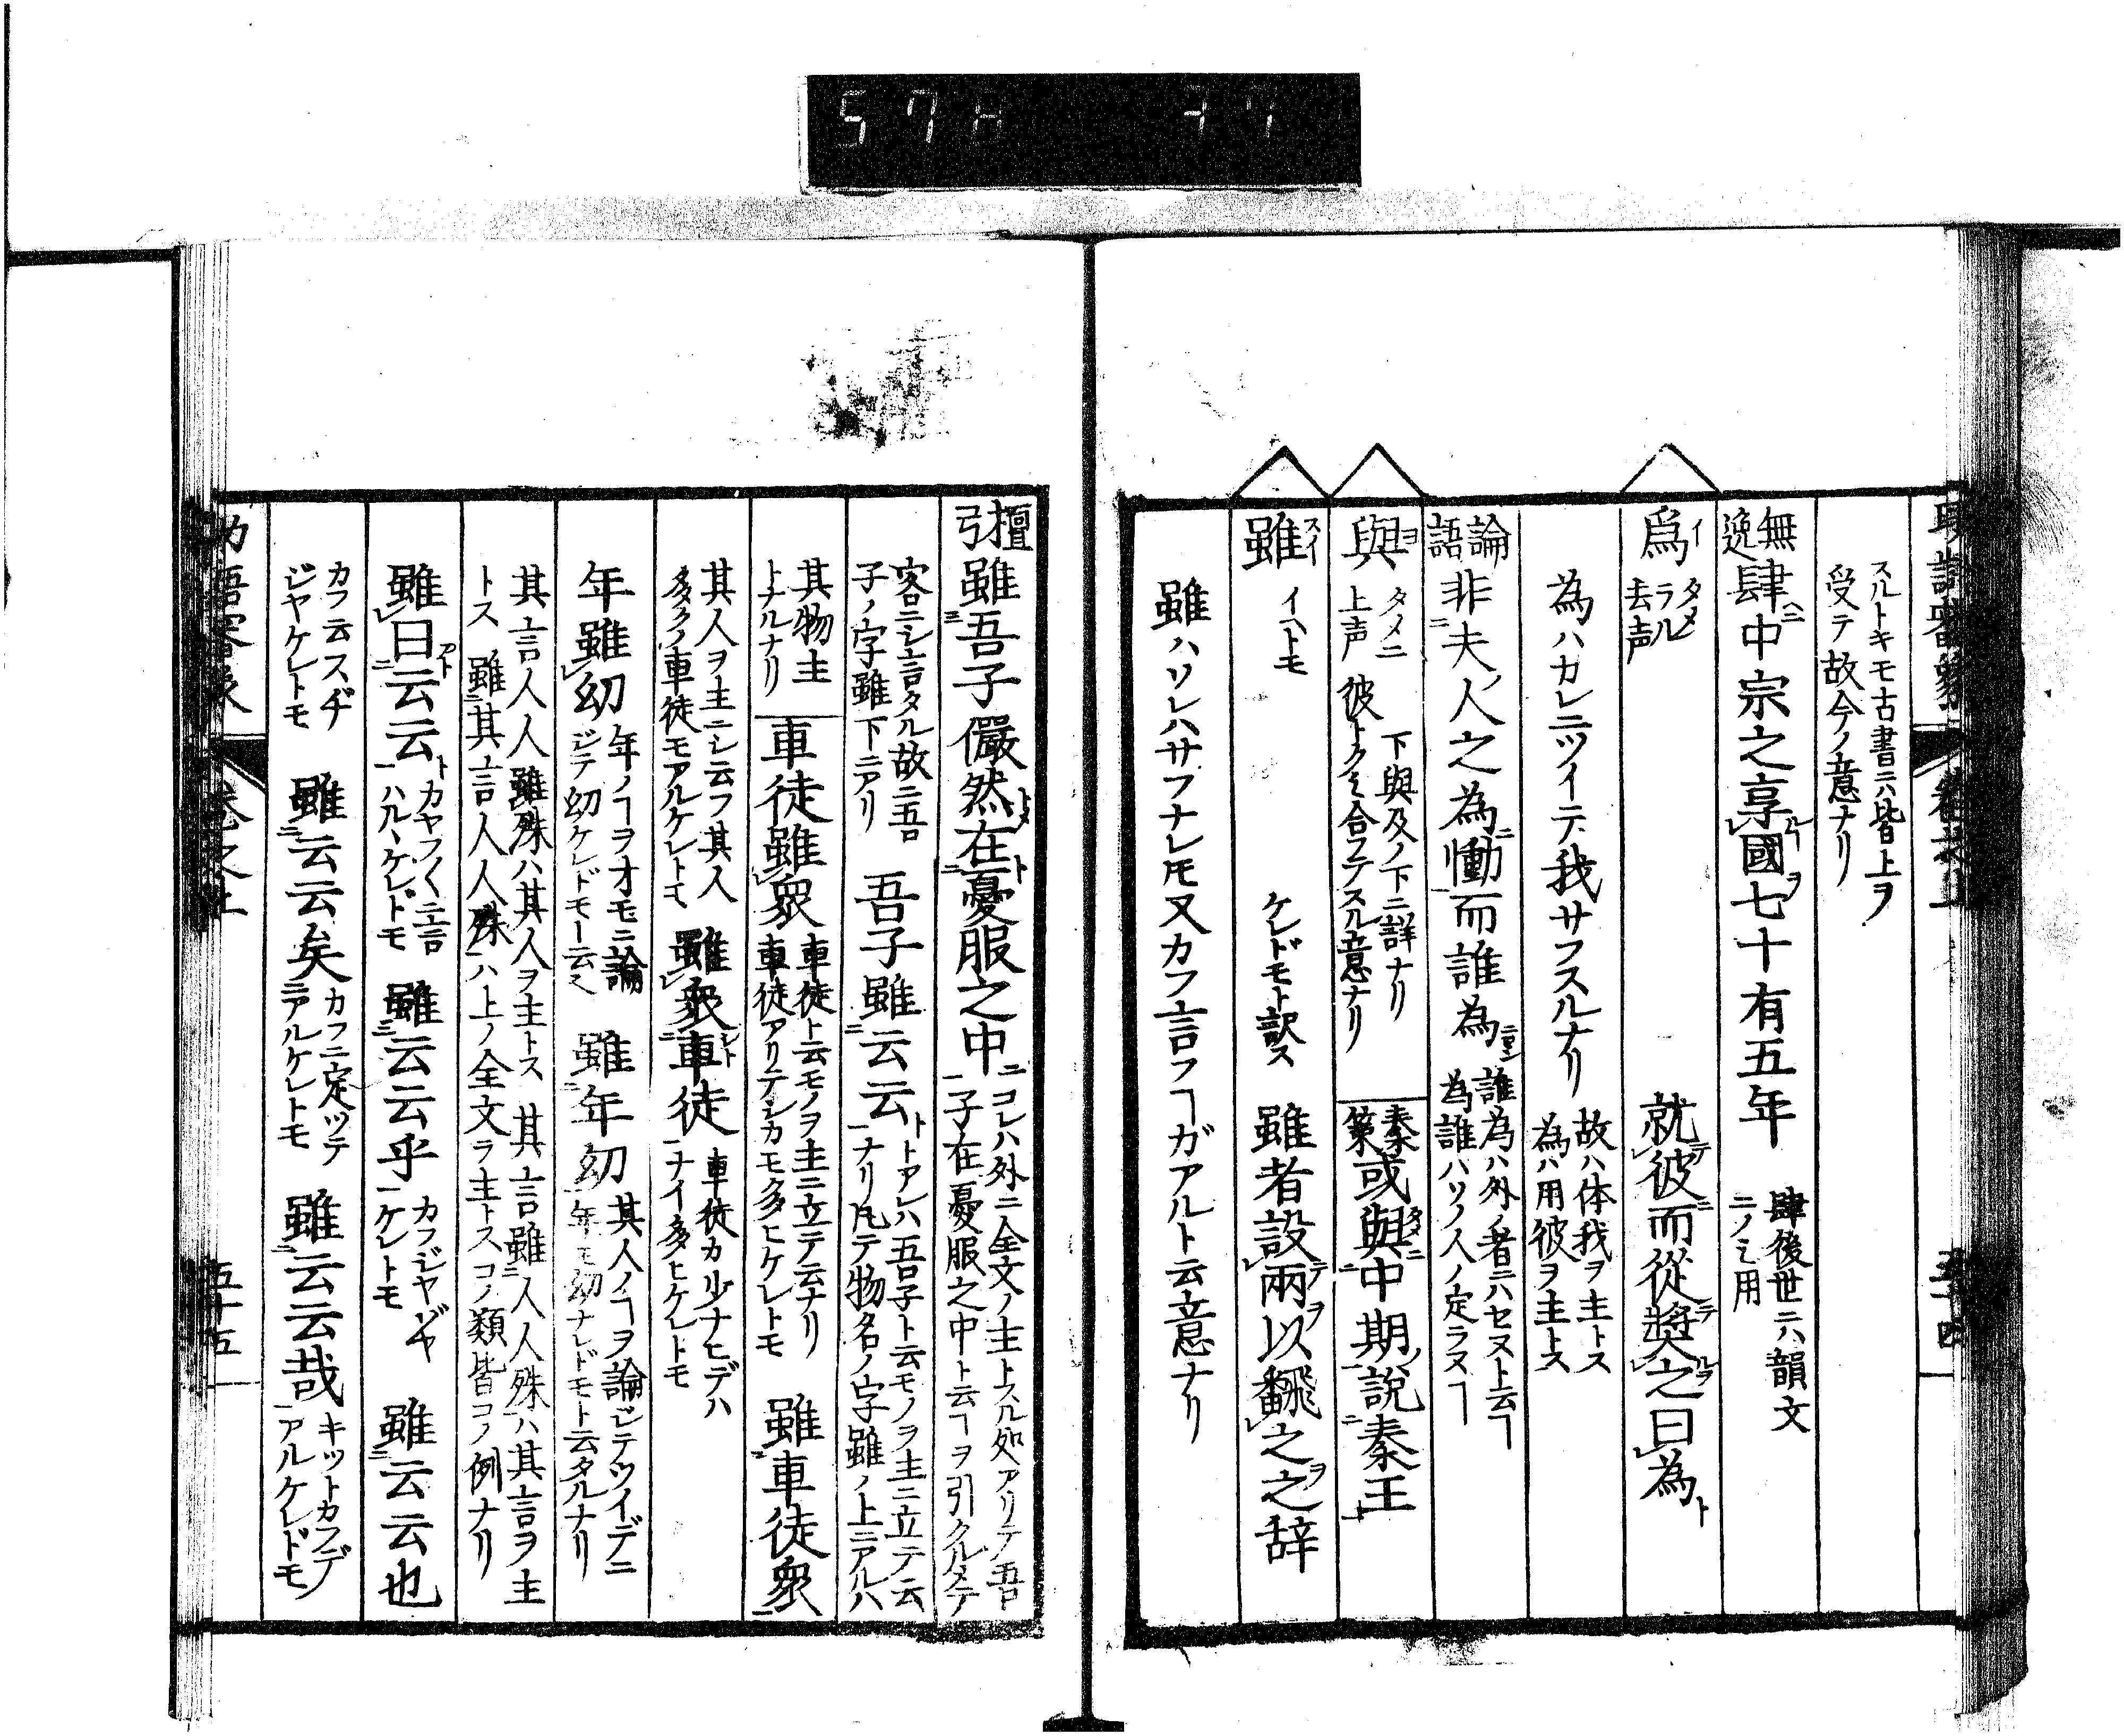 スルトキモ古書ニハ皆上ヲ
受テ故今ノ意ナリ
無逸 肆中宗之享國七十有五年 肆後世ニハ韻文
ニノミ用
爲 タメ ラル 去声 就彼而從奬之曰為 故ハ体我ヲ主トス
為ハ用彼ヲ主トス
為ハカレニツイテ我サフスルナリ
論語 非夫人之為慟而誰為 誰為ハ外ノ者ニハセヌト云ヿ
為誰ハソノ人ノ定ラヌヿ
與 タメニ 上声 下與及ノ下ニ詳ナリ
彼トクミ合フテスル意ナリ
秦策 或與中期說秦王
雖 スイ イヘトモ ケレドモト訳ス 雖者設兩以飜之之辞
雖ハソレハサフナレ𪜈又カフ言フヿガアルト云意ナリ
檀弓 雖吾子儼然在憂服之中 コレハ外ニ全文ノ主トスル処アリテ吾
子在憂服之中ト云ヿヲ引クルタテ
客ニシ言タル故ニ吾
子ノ字雖下ニアリ
吾子雖云云 トアレハ吾子ト云モノヲ主ニ立テ云
ナリ凡テ物名ノ字雖ノ上ニアルハ
其物主
トナルナリ
車徒雖衆 車徒ト云モノヲ主ニ立テ云ナリ
車徒アリテシカモ多ヒケレトモ
雖車徒衆
其人ヲ主ニシ云フ其人
多クノ車徒モアルケレトモ
雖衆車徒 車徒カ少ナヒデハ
ナイ多ヒケレトモ
年雖幼 年ノヿヲオモニ論
ジテ幼ケレドモー云
雖年幼 其人ノヿヲ論ジテツイデニ
年モ幼ナレドモト云タルナリ
其言人人雖殊ハ其人ヲ主トス 其言雖人人殊ハ其言ヲ主
トス 雖其言人人殊ハ上ノ全文ヲ主トスコノ類皆コノ例ナリ
雖曰云云 トカヤフ〱ニ言
ハルヽケレドモ
雖云云乎 カフジヤゾヤ
ケレトモ
雖云云也
カフ云スヂ
ジヤケレトモ
雖云云矣 カフニ定ツテ
アルケレトモ
雖云云哉 キットカフデ
アルケレドモ
五十五